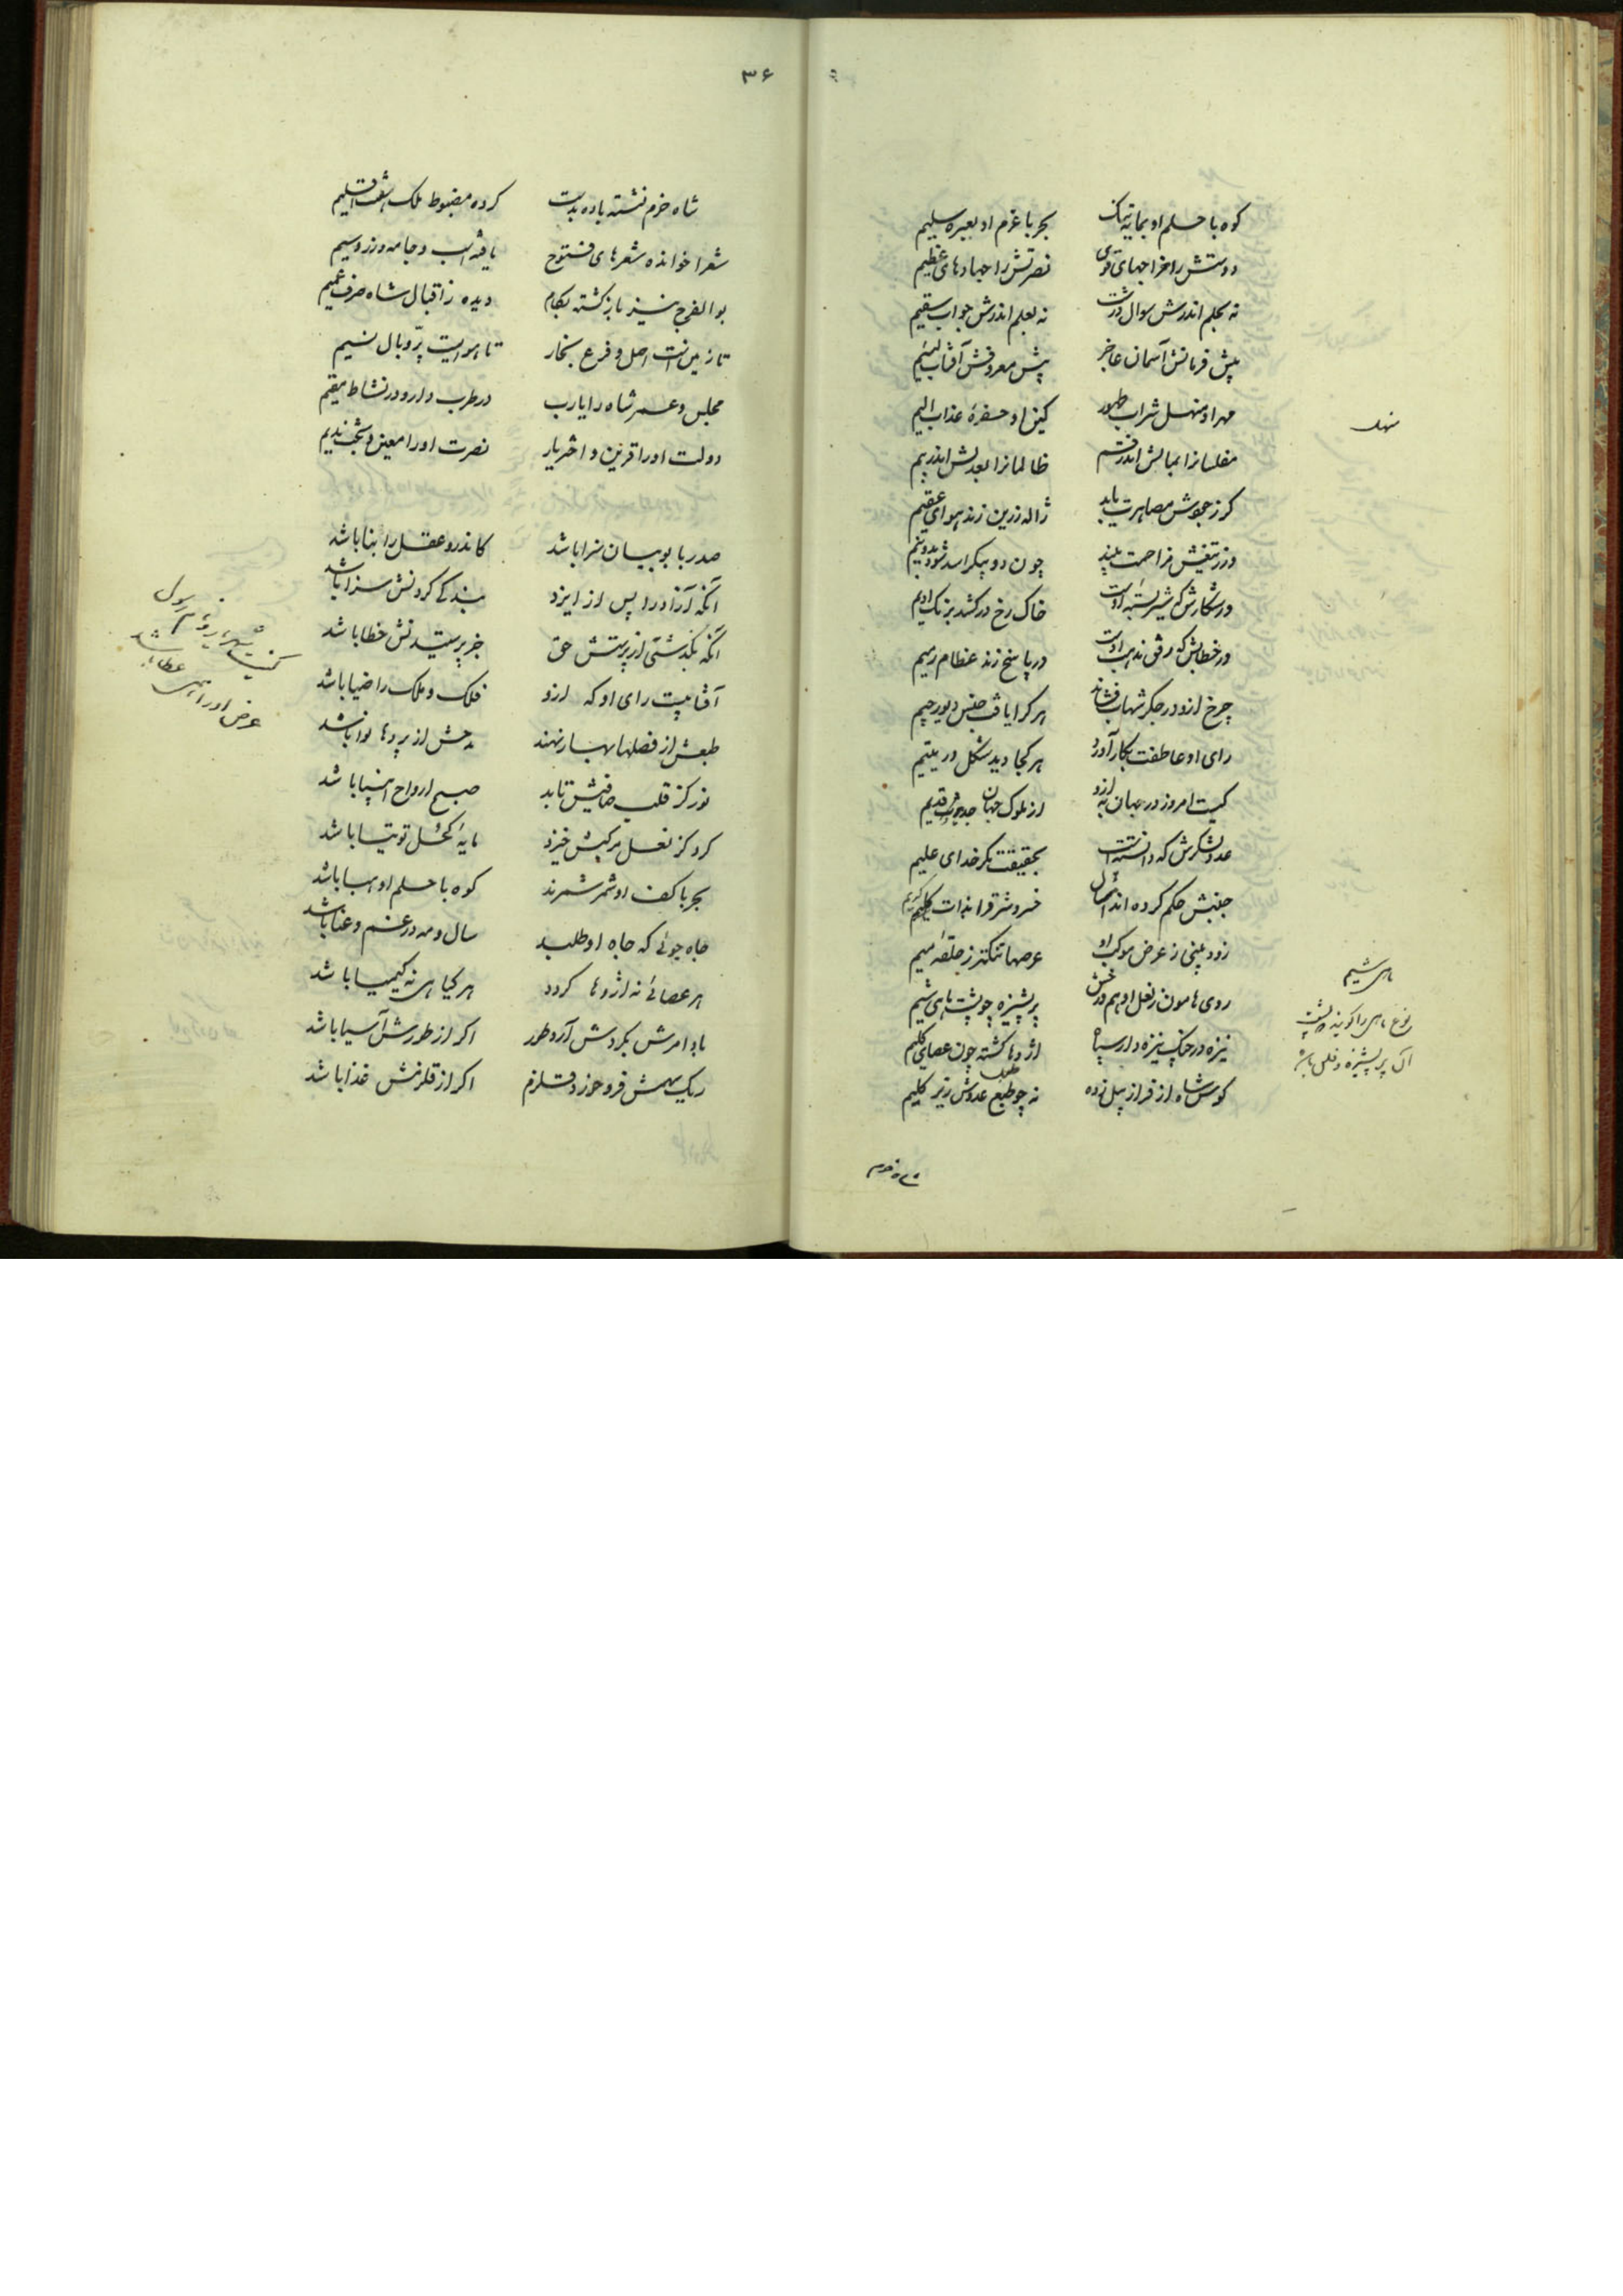 کوه با حلم او بماتیه تنک بحر با عزم او بعبره سلیم
دولتش را خراجهای قوی نصرتش را جهادهای عظیم
نه بحلم اندرش سوال درشت نه بعلم اندرش جواب سقیم
پیش فرمانش آسمان عاجز پیش معروفش آفتاب لئیم
مهر او منهل شراب طهور کین او حفرهٔ عذاب الیم
مفلسانرا بمالش اندر قسم ظالمانرا بعدلش اندر بیم
کر ز جودش مصاهرت یابد ژاله زرین زند هوای عقیم
ور ز تیغش مزاحمت بیند چون دو پیکر اسد شود بدونیم
ور شکارش که شیر بسته اوست خاک رخ درکشد برنک ادیم
ور خطابش که رفق مذهب اوست در پاسخ زند عظام رمیم
چرخ ازو در جکر شهاب نشاند هر کرا یافت جنس دیو رجیم
رای او عاطفت بکار آورد هر کجا دید شکل در یتیم
کیست امروز در جهان به ازو از ملوک جهان حدیث و قدیم
عدد لشکرش که دانسته است بحقیقت مکر خدای علیم
جنبش حکم کرده اند امسال خسرو شرق را بذات کلیم کریم
زود بینی ز عرض موکب او عرصها تنکتر ز حلقهٔ میم
روی هامون ز نعل ادهم و رخش پر پشیزه چو پشت ماهی شیم
نیزه در چنک نیزه دار سپاه اژدها کشته چون عصای کلیم
کوس شاه از فراز پیل زده نه چو طبل عدوش زیر کلیم
منهل
ماهی شیم
نوع ماهی را کویند که پشت
آن پر پشیزه و فلس باشد
شاه خرم
۳۶
شاه خرم نشسته باده بدست کرده مضبوط ملک هفت اقلیم
شعرا خوانده شعرهای فتوح یافته اسب و جامه و زر و سیم
بوالفرج نیز بازکشته بکام دیده ز اقبال شاه صرف عمیم
تا زمین است اصل و فرع بخار تا هوایست پر و بال نسیم
مجلس و عمر شاه را یارب در طرب دار و در نشاط مقیم
دولت او را قرین و اختر یار نصرت او را معین و بخت ندیم
صدر با بوبیان سزا باشد کاندرو عقل را بنا باشد
آنکه آزاد را پس از ایزد بندکی کردنش سزا باشد
آنکه بکذشتی از پرستش حق جز پرستیدنش خطا باشد
آفتابیست رای او که ازو فلک و ملک را ضیا باشد
طبعش از فصلها بهار نهند مدحش از پردها نوا باشد
نور کز قلب صافیش تابد صبح ارواح انبیا باشد
کرد کز نعل مرکبش خیزد مایهٔ کحل توتیا باشد
بحر با کف او شمر شمرند کوه با حلم او هبا باشد
جاه جوئی که جاه او طلبد سال و مه در غم و عنا باشد
هر عصائی نه اژدها کردد هر کیاهی نه کیمیا باشد
باد امرش بکردش آرد طور اکر از طورش آسیا باشد
ریک سهمش فرو خورد قلزم اکر از قلزمش غذا باشد